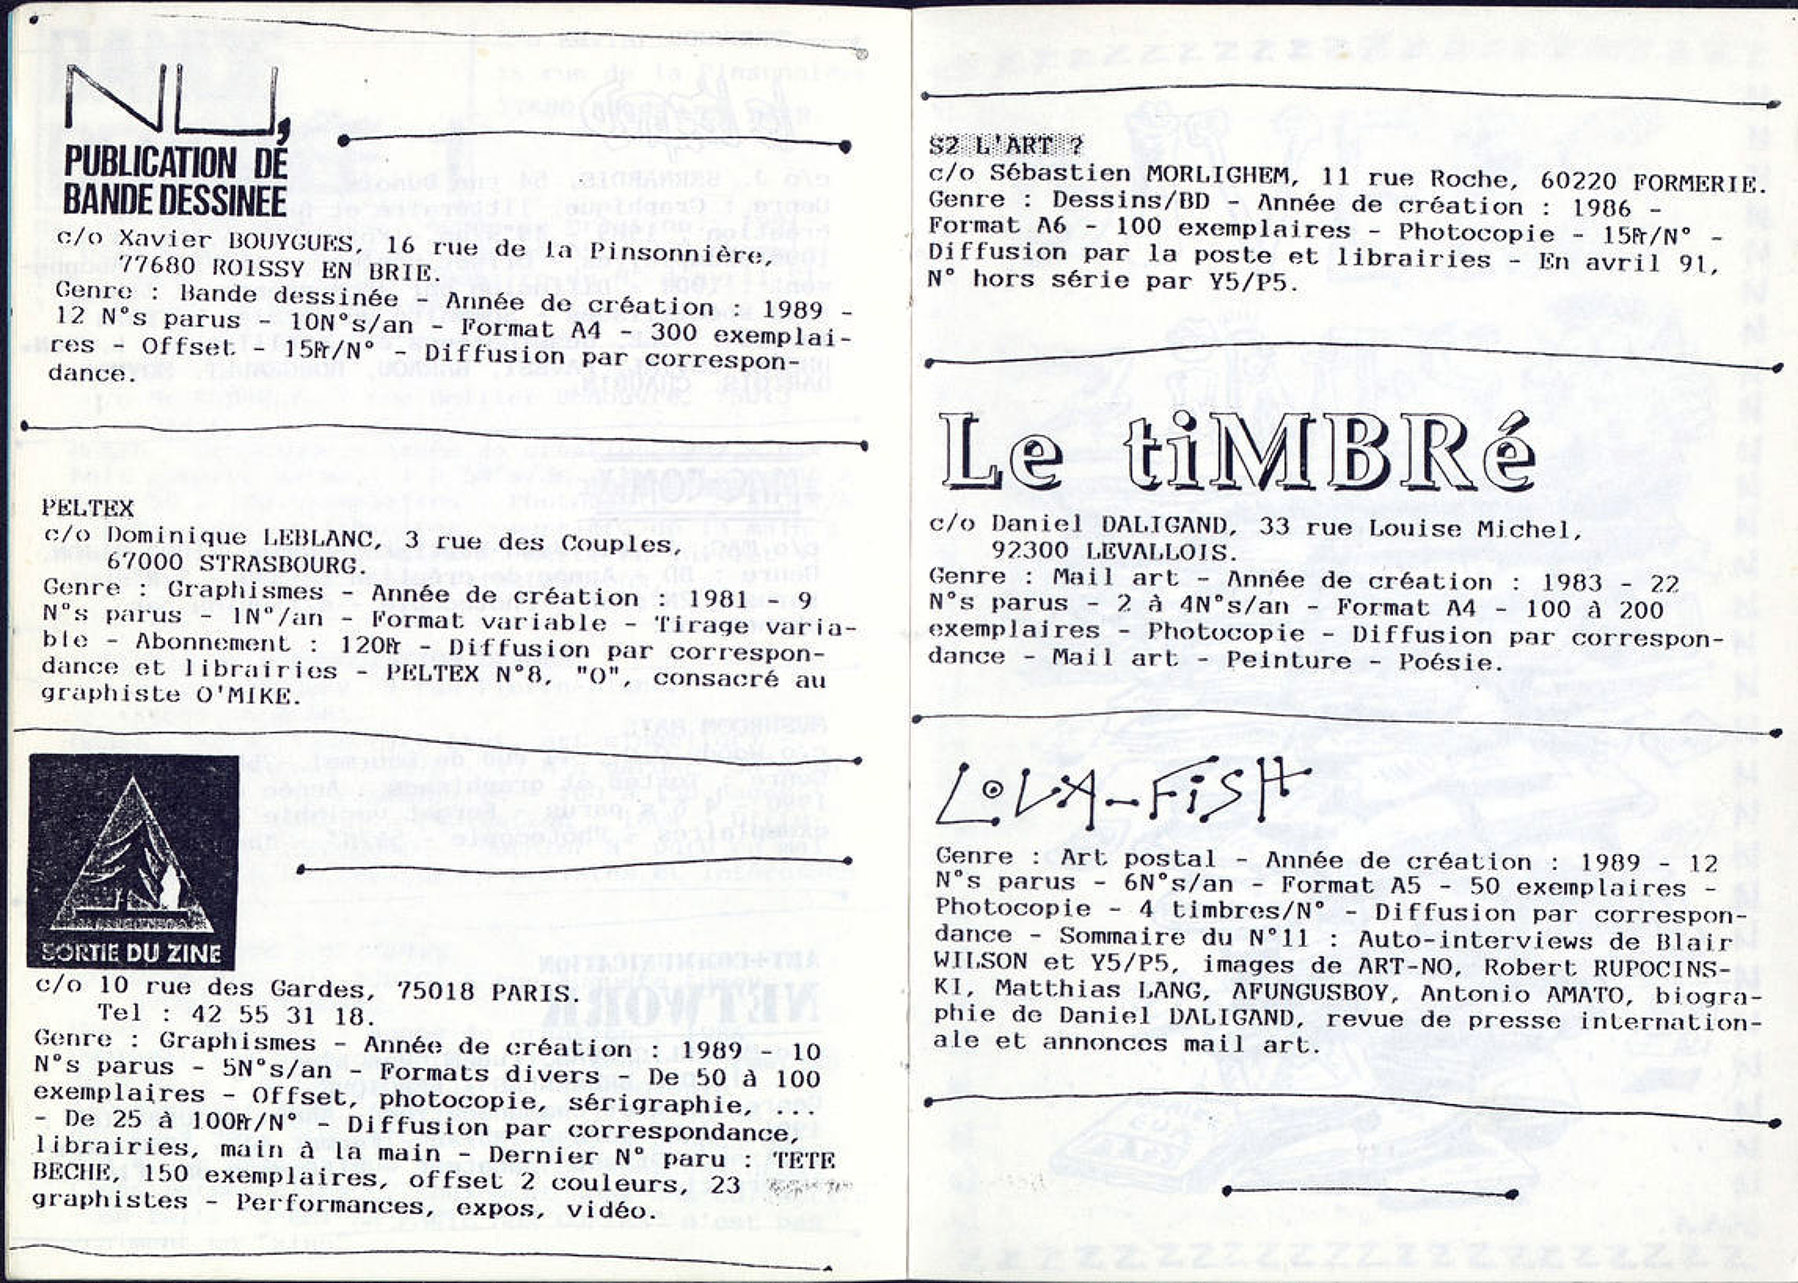 NU,
PUBLICATION DE
BANDE DESSINEE
c/o Xavier BOUYGUES, 16 rue de la Pinsonnière,
77680 ROISSY EN BRIE.
Genre : Bande dessinée - Année de création : 1989 -
12 N°s parus - 10N°s/an - Format A4 - 300 exemplai-
res - Offset - 15Fr/N° - Diffusion par correspon-
dance.
PELTEX
c/o Dominique LEBLANC, 3 rue des Couples,
67000 STRASBOURG.
Genre : Graphismes - Année de création : 1981 - 9
N°s parus - 1N°/an - Format variable - Tirage varia-
ble - Abonnement : 120Fr - Diffusion par correspon-
dance et librairies - PELTEX N°8, "O", consacré au
graphiste O'MIKE.
SORTIE DU ZINE
c/o 10 rue des Gardes, 75018 PARIS.
Tel : 42 55 31 18.
Genre : Graphismes - Année de création : 1989 - 10
N°s parus - 5N°s/an - Formats divers - De 50 à 100
exemplaires - Offset, photocopie, sérigraphie, ...
- De 25 à 100Fr/N° - Diffusion par correspondance,
librairies, main à la main - Dernier N° paru : TETE
BECHE, 150 exemplaires, offset 2 couleurs, 23
graphistes - Performances, expos, vidéo.
S2 L'ART ?
c/o Sébastien MORLIGHEM, 11 rue Roche, 60220 FORMERIE.
Genre : Dessins/BD - Année de création : 1986 -
Format A6 - 100 exemplaires - Photocopie - 15Fr/N° -
Diffusion par la poste et librairies - En avril 91,
N° hors série par Y5/P5.
Le tiMBRé
c/o Daniel DALIGAND, 33 rue Louise Michel,
92300 LEVALLOIS.
Genre : Mail art - Année de création : 1983 - 22
N°s parus - 2 à 4N°s/an - Format A4 - 100 à 200
exemplaires - Photocopie - Diffusion par correspon-
dance - Mail art - Peinture - Poésie.
LOLA-FiSH
Genre : Art postal - Année de création : 1989 - 12
N°s parus - 6N°s/an - Format A5 - 50 exemplaires -
Photocopie - 4 timbres/N° - Diffusion par correspon-
dance - Sommaire du N°11 : Auto-interviews de Blair
WILSON et Y5/P5, images de ART-NO, Robert RUPOCINS-
KI, Matthias LANG, AFUNGUSBOY, Antonio AMATO, biogra-
phie de Daniel DALIGAND, revue de presse internation-
ale et annonces mail art.